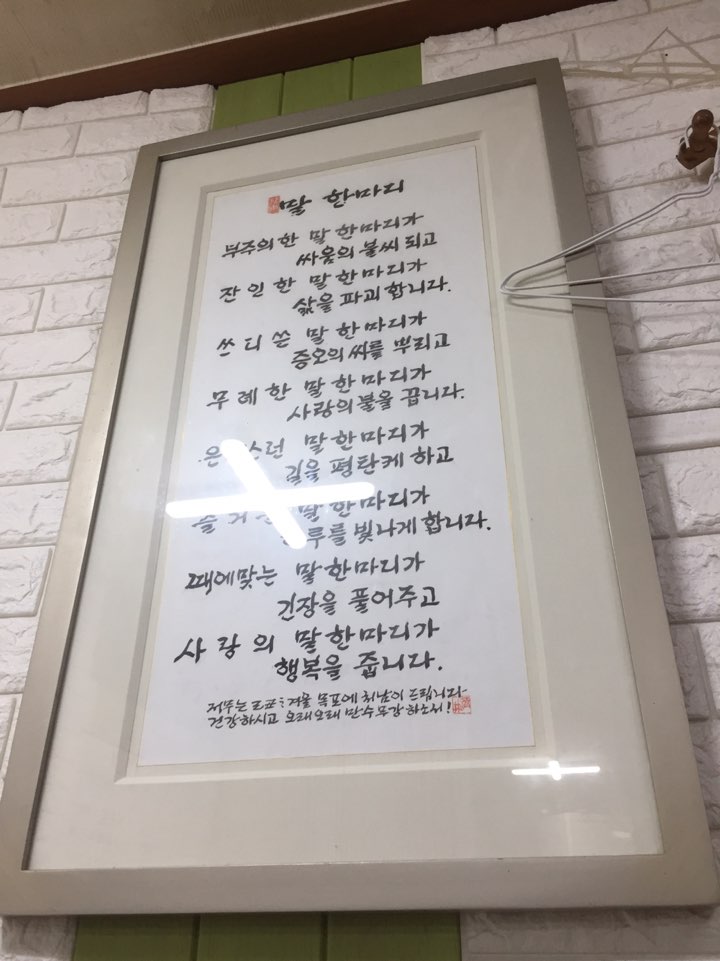 말 한마디
부주의한 말 한마디가
싸움의 불씨 되고
잔인한 말 한마디가
삶을 파괴합니다.
쓰디쓴 말 한마디가
증오의 씨를 뿌리고
무례한 말 한마디가
사랑의 불을 끕니다.
말 한마디가
길을 평탄케 하고
말 한마디가
빛나게 합니다.
때에맞는 말한마디가
긴장을 풀어주고
사랑의 말한마디가
행복을 줍니다.
겨울 목포에 드립니다
건강하시고 오래오래 만수무강 하소서!